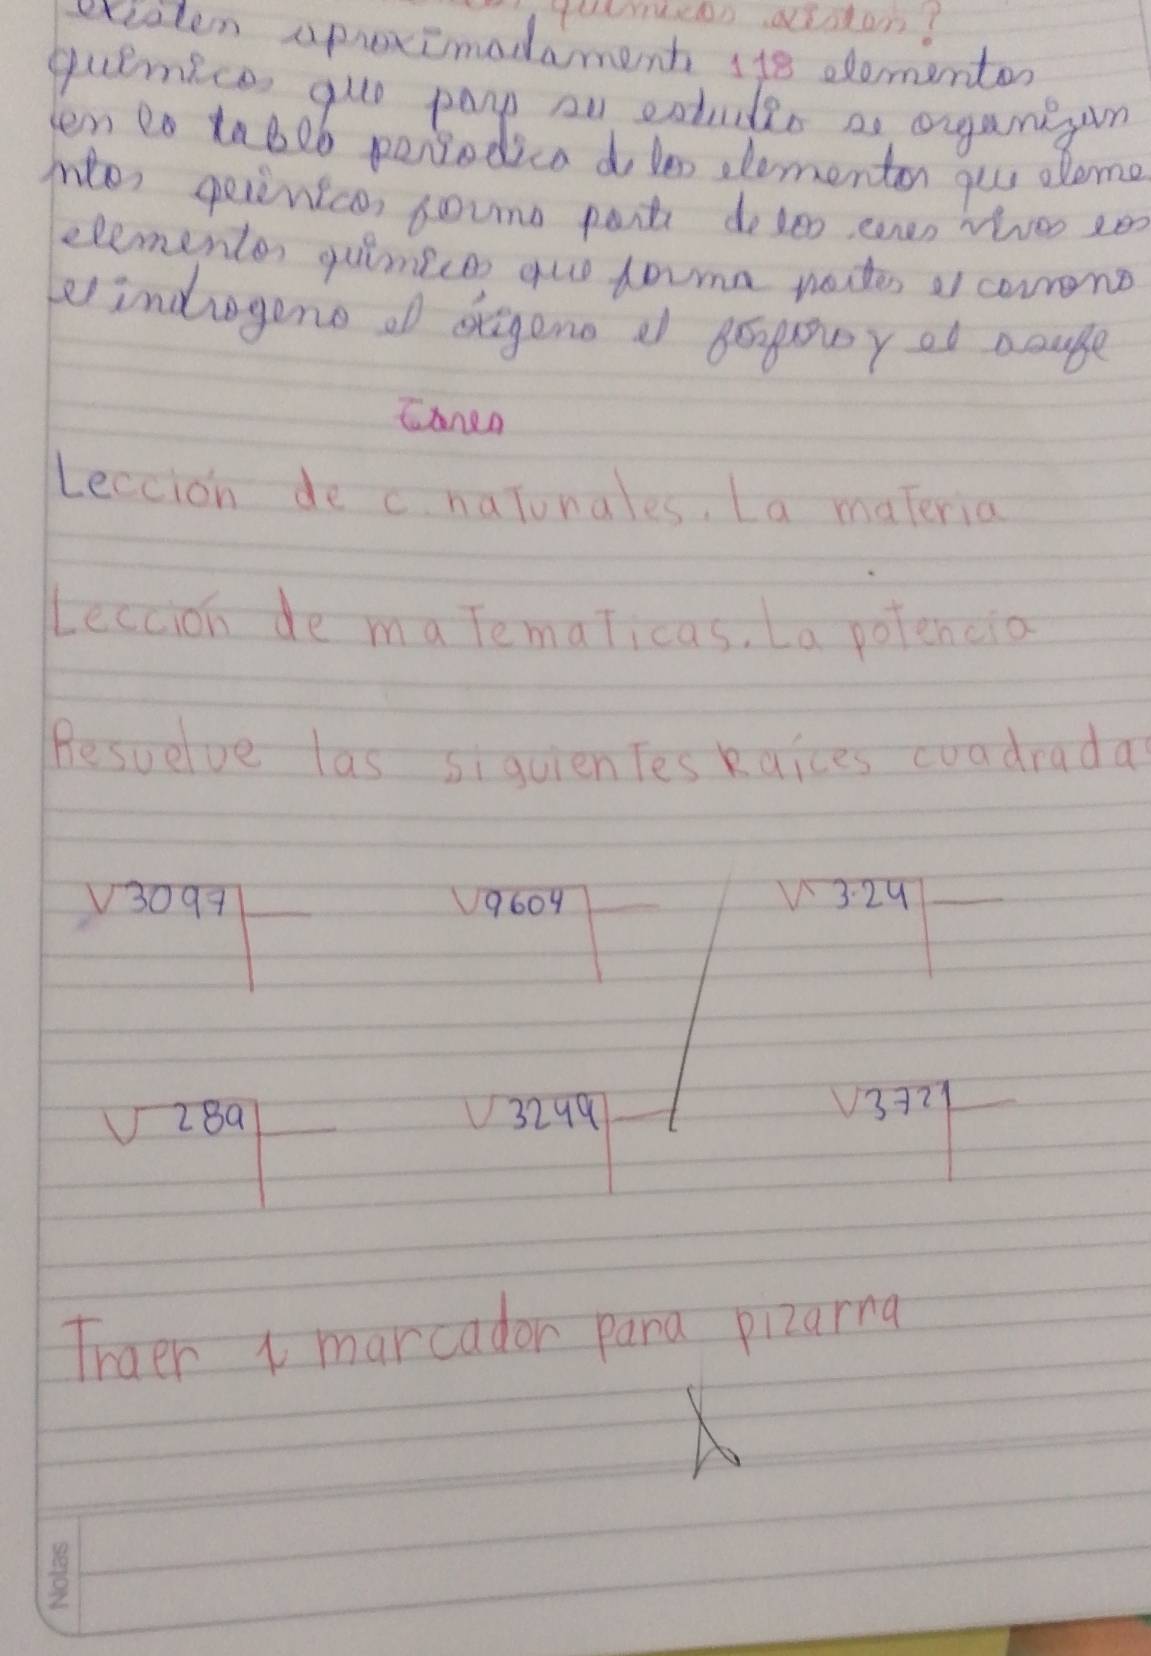 quimicos existen?
existen aproximadamente 118 elementos
químicos que para su estudio se organizan
en la tabla periodica de los elementos que eleme
ntos químicos forma parte de los ceres vivos los
elementos químicos que forma partes el carrono
el indrogeno el óxigeno el fosforo y el asufe
Tarea
Lección de c. naturales. La materia
Lección de matematicas. La potencia
Resuelve las siguientes Raíces cuadradas
√3097 √9604 √3.24
√289 √3249 √3721
Traer 1 marcador para pizarra
Notas